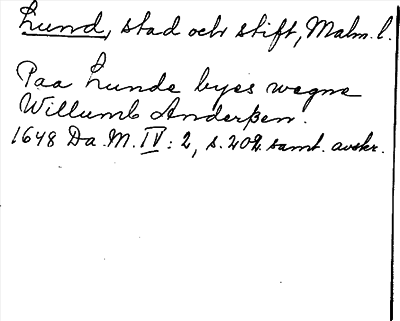 Lund, stad och stift, Malm. l.
Paa Lunde byes wegne
Willumb Anderßen.
1648 Da. M. IV: 2, s. 202. samt. avskr.